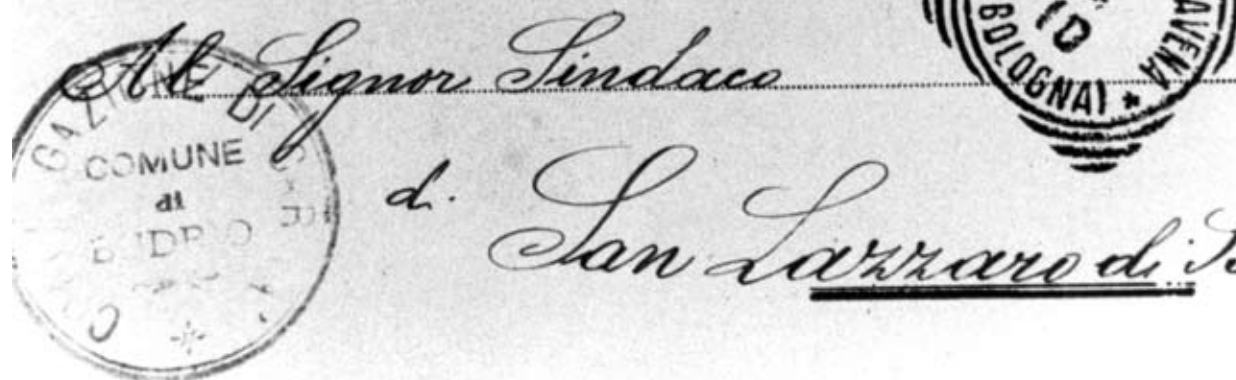 Al Signor Sindaco
di
San Lazzaro di
COMUNE
di
BUDRIO
10
BOLOGNA) *